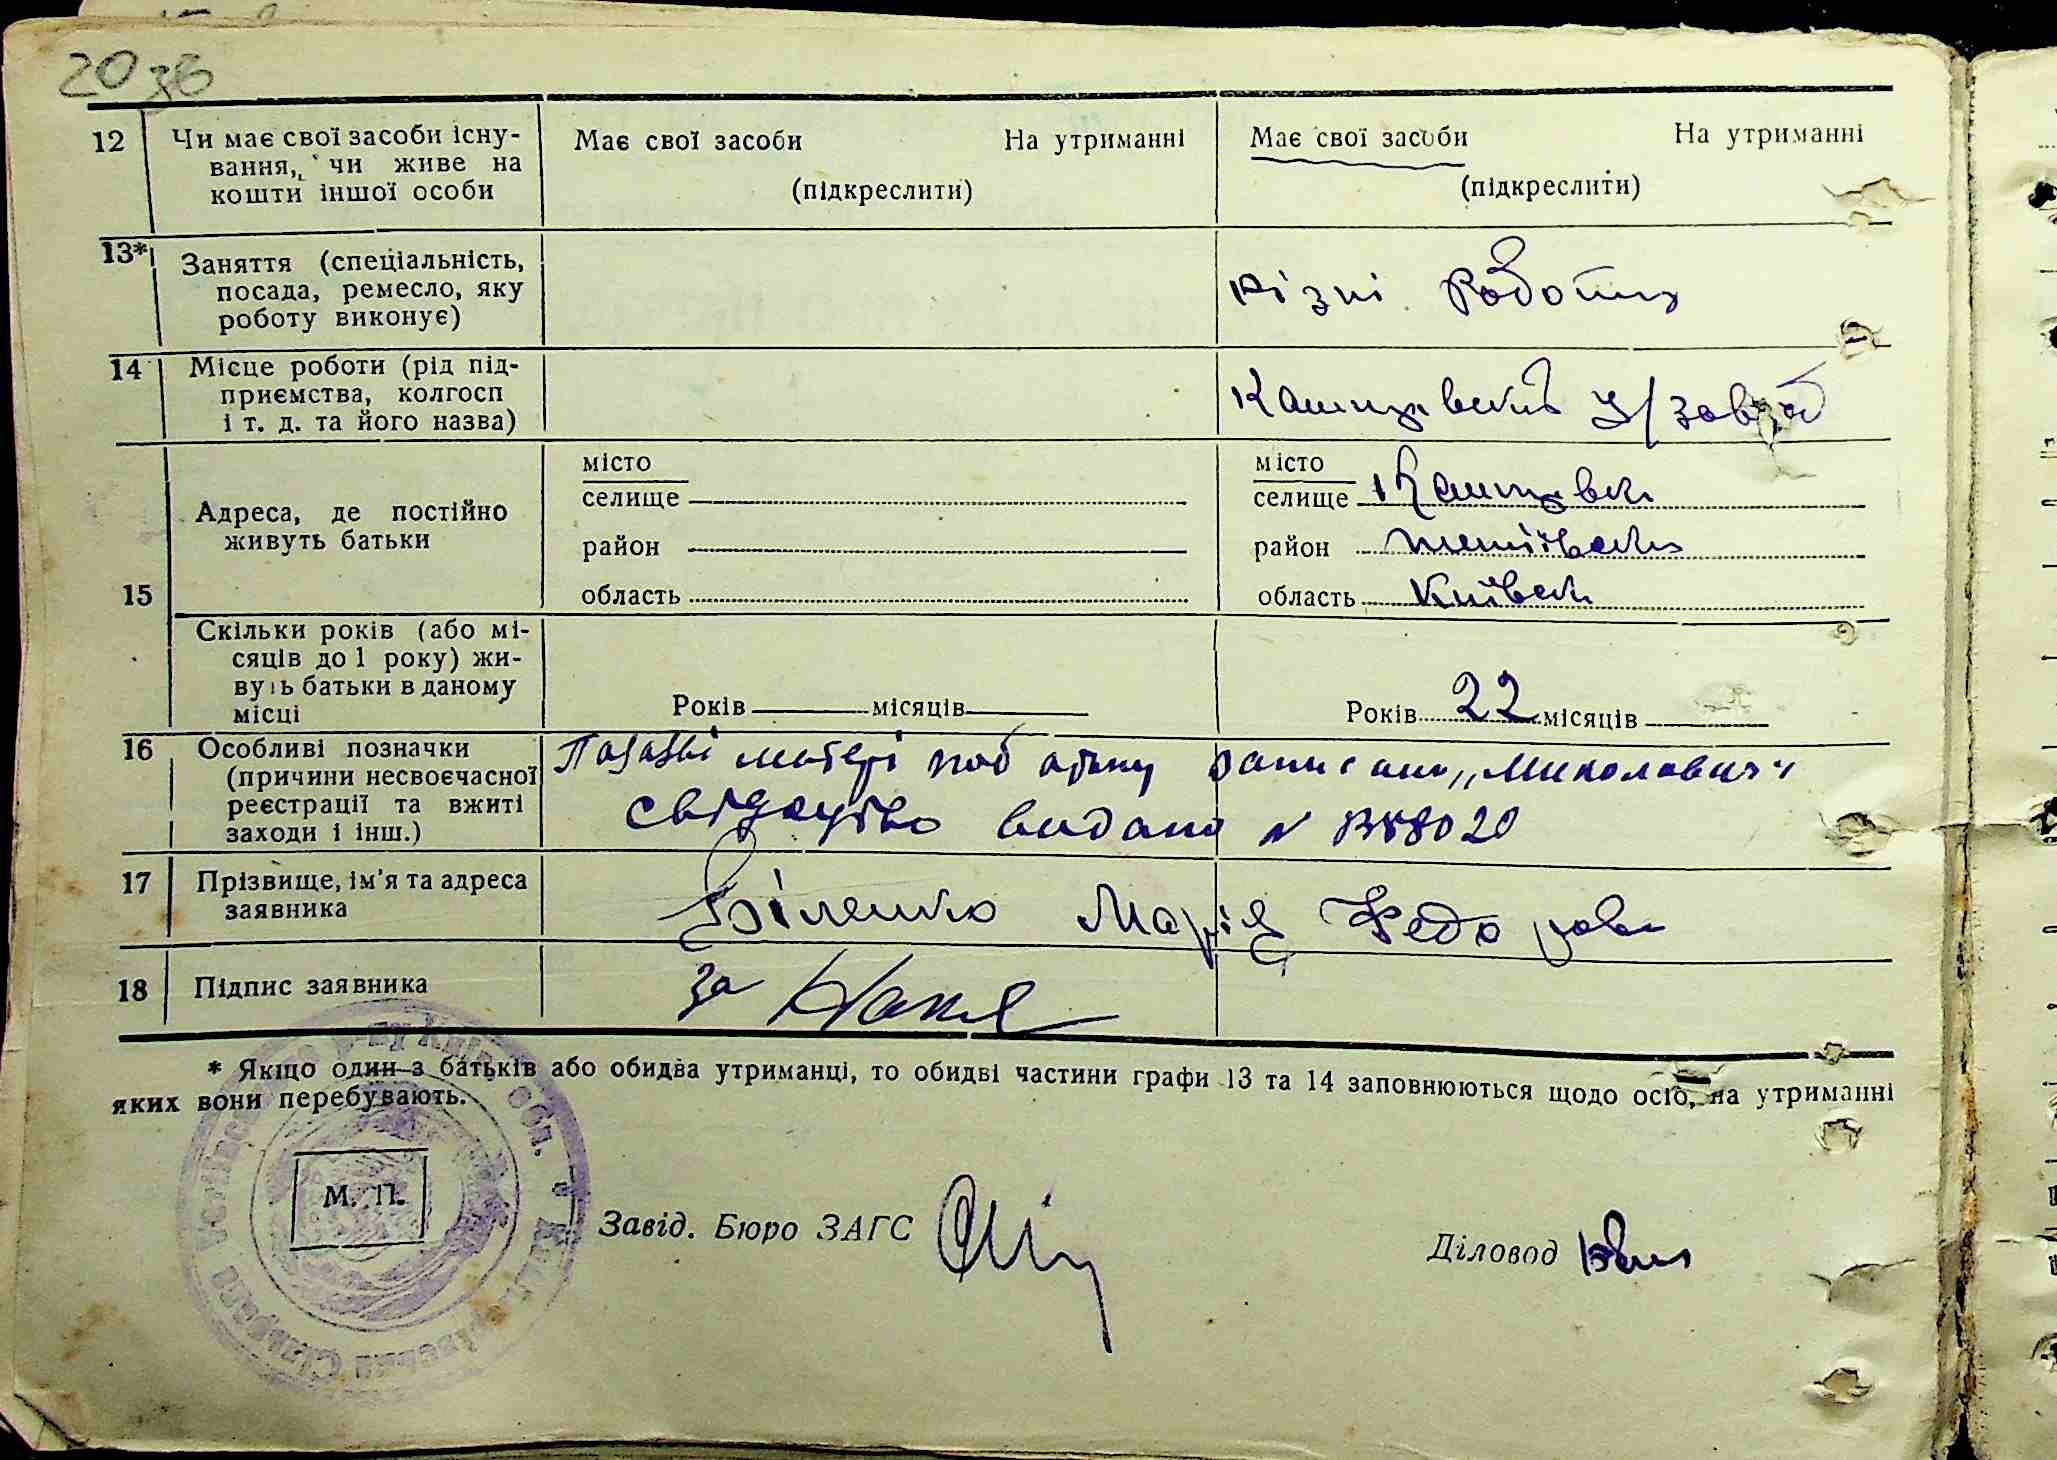 20 зв
12 Чи має свої засоби існу- Має свої засоби На утриманні Має свої засоби На утриманні
вання, чи живе на (підкреслити) (підкреслити)
кошти іншої особи
13* Заняття (спеціальність,
посада, ремесло, яку різні роботи
роботу виконує)
14 Місце роботи (рід під-
приємства, колгосп Кашперівський ц/завод
і т. д. та його назва)
місто місто
селище селище Кашперівськ
Адреса, де постійно
живуть батьки район район тетіївський
15 область область Київськ
Скільки років (або мі-
сяців до 1 року) жи-
вуть батьки в даному
місці Років місяців Років 22 місяців
16 Особливі позначки По заяві матері по батьку записано „Миколович"
(причини несвоєчасної
реєстрації та вжиті свідоцтво видано №
заходи і інш.)
17 Прізвище, ім'я та адреса Біленко Марія Федорівна
заявника
18 Підпис заявника за
* Якщо один з батьків або обидва утриманці, то обидві частини графи 13 та 14 заповнюються щодо осіб, на утриманні
яких вони перебувають.
М. П.
Завід. Бюро ЗАГС
Діловод